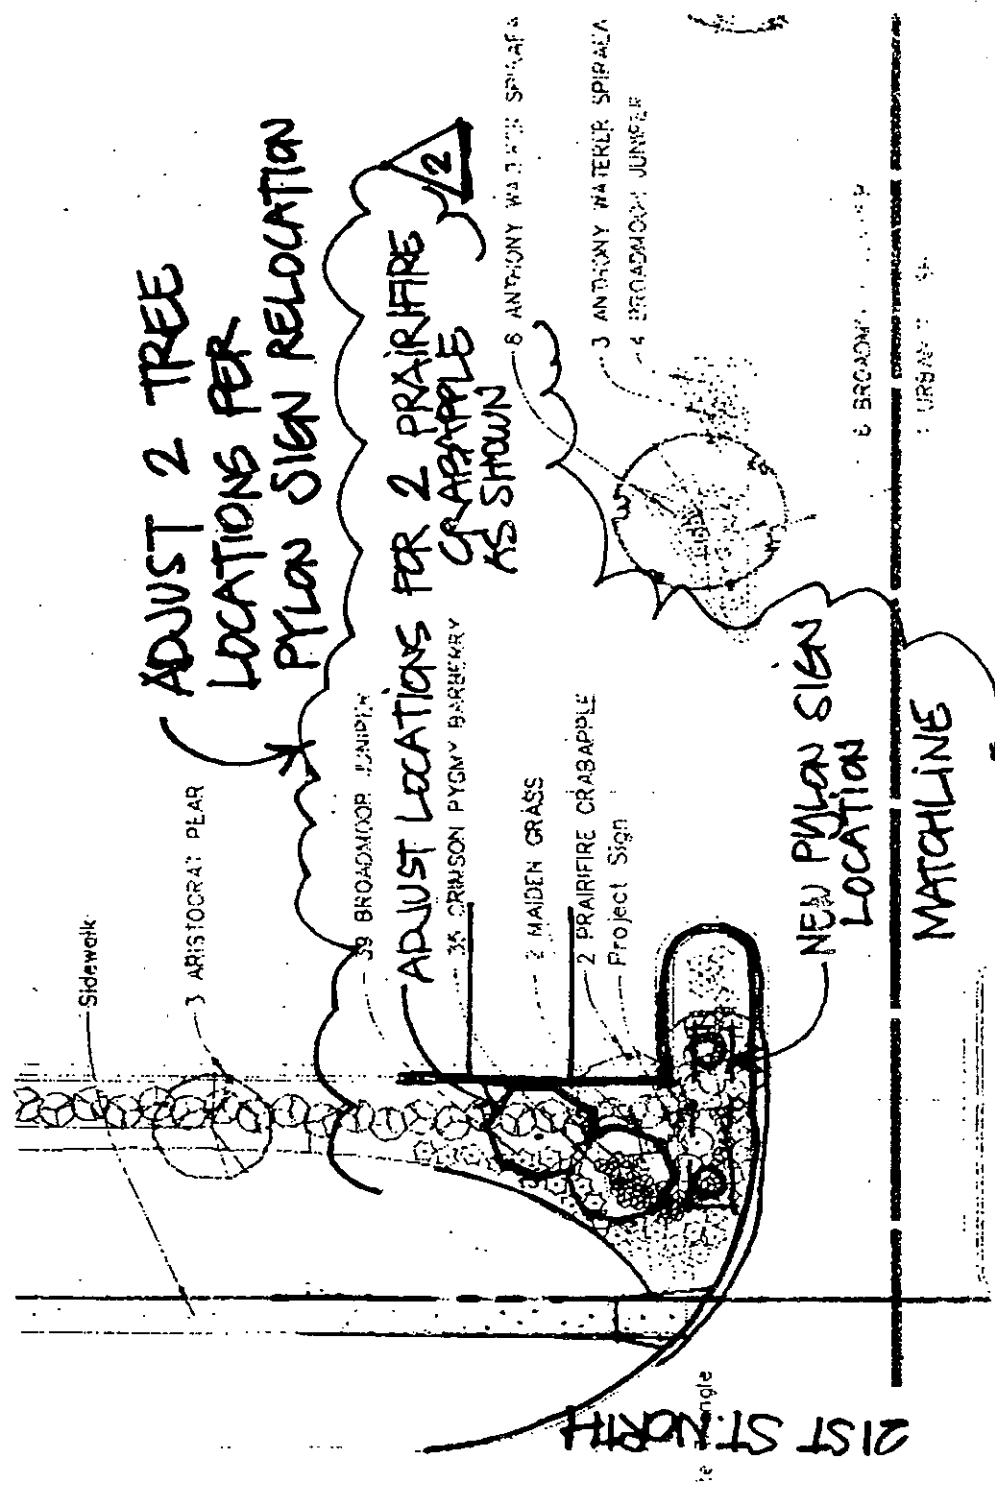 Sidewalk
3 ARISTOCRAT PEAR
ADJUST 2 TREE
LOCATIONS PER
PYLON SIGN RELOCATION
2
39 BROADMOOR JUNIPER
ADJUST LOCATIONS FOR 2 PRAIRIFIRE
CRABAPPLE
AS SHOWN
35 CRIMSON PYGMY BARBERRY
8 ANTHONY WATERER SPIRAEA
2 MAIDEN GRASS
2 PRAIRIFIRE CRABAPPLE
Project Sign
3 ANTHONY WATERER SPIRAEA
4 BROADMOOR JUNIPER
NEW PYLON SIGN
LOCATION
6
MATCHLINE
21ST ST. NORTH